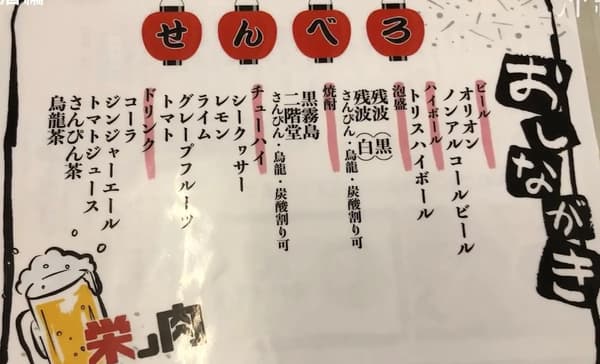 せんべろ
おしながき
ビール
オリオン
ノンアルコールビール
ハイボール
トリスハイボール
泡盛
残波(黒)
残波(白)
さんぴん・烏龍・炭酸割り可
焼酎
黒霧島
二階堂
さんぴん・烏龍・炭酸割り可
チューハイ
シークヮサー
レモン
ライム
グレープフルーツ
トマト
ドリンク
コーラ
ジンジャーエール
トマトジュース
さんぴん茶
烏龍茶
栄ノ肉